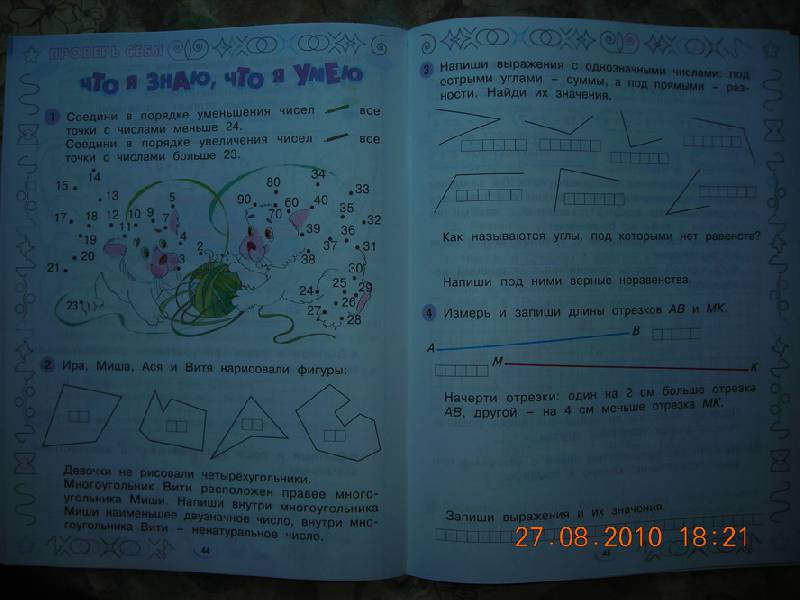 ПРОВЕРЬ СЕБЯ
ЧТО Я ЗНАЮ, ЧТО Я УМЕЮ
1 Соедини в порядке уменьшения чисел все
точки с числами меньше 24.
Соедини в порядке увеличения чисел все
точки с числами больше 23.
14
15
13
17 18 12 11 10 9 7 5
19
20 4
21 3
23
2
90 80 70 60 40 34 33
35
32
39 36
37 31
38
30
24 25 29
26
27 28
2 Ира, Миша, Ася и Витя нарисовали фигуры:
Девочки не рисовали четырёхугольники.
Многоугольник Вити расположен правее много-
угольника Миши. Напиши внутри многоугольника
Миши наименьшее двузначное число, внутри мно-
гоугольника Вити – ненатуральное число.
44
3 Напиши выражения с однозначными числами: под
острыми углами – суммы, а под прямыми – раз-
ности. Найди их значения.
Как называются углы, под которыми нет равенств?
Напиши под ними верные неравенства.
4 Измерь и запиши длины отрезков АВ и МК.
А В
М К
Начерти отрезки: один на 2 см больше отрезка
АВ, другой – на 4 см меньше отрезка МК.
Запиши выражения и их значения.
45
27.08.2010 18:21